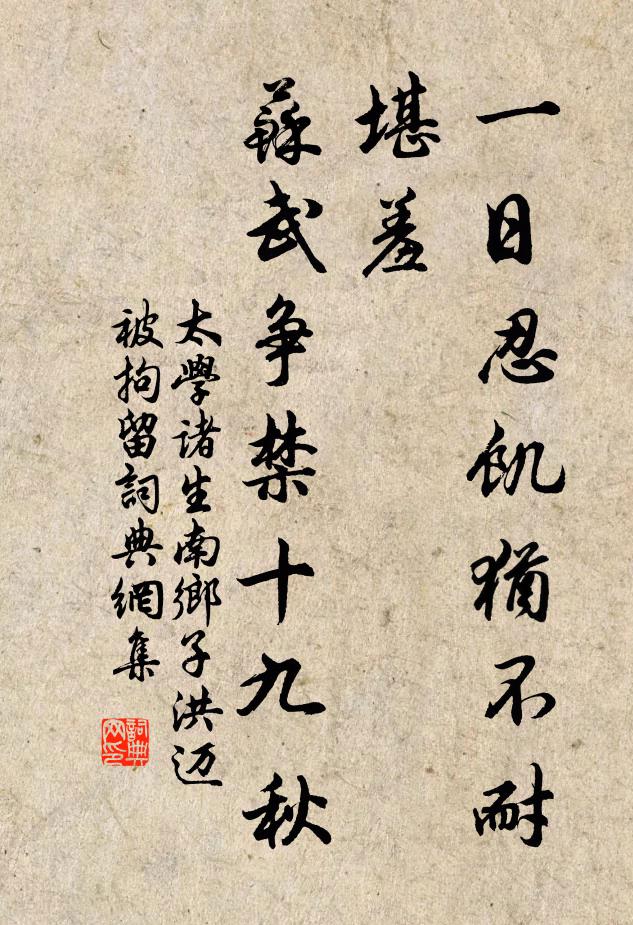 一日忍飢猶不耐
堪羞
蘇武争禁十九秋
太學诸生南鄉子洪迈
被拘留詞典網集
詞典网印